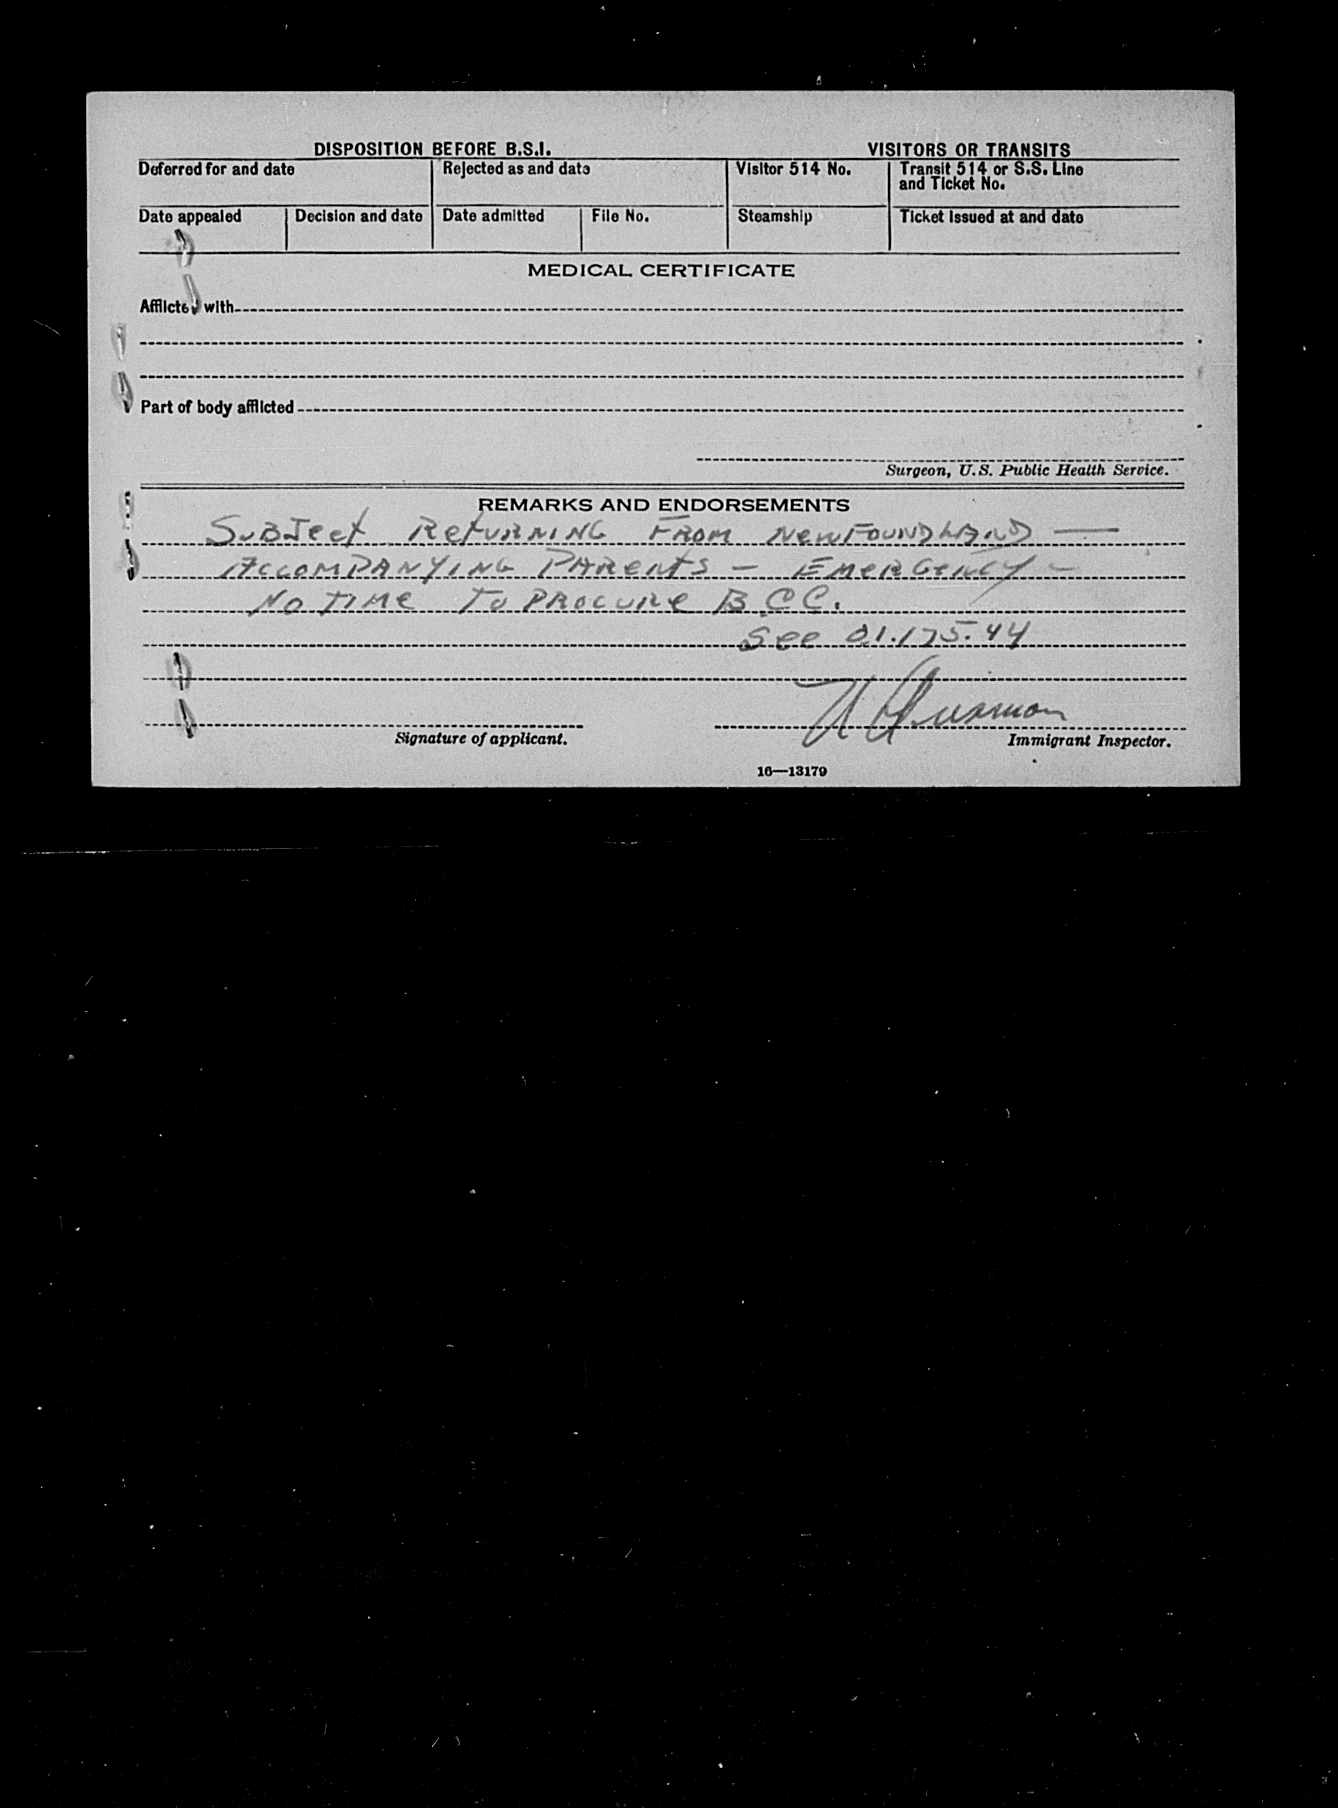 DISPOSITION BEFORE B.S.I. VISITORS OR TRANSITS
Deferred for and date Rejected as and date Visitor 514 No. Transit 514 or S.S. Line and Ticket No.
Date appealed Decision and date Date admitted File No. Steamship Ticket issued at and date
MEDICAL CERTIFICATE
Afflicted with
Part of body afflicted
Surgeon, U.S. Public Health Service.
REMARKS AND ENDORSEMENTS
SUBJect ReTURNING FROM NewFOUNDLAND —
ACCOMPANYING PAReNTS — EMeRGeNCY —
NO TIMe TO PROCURe B C C.
See 01.175.44
Signature of applicant. Immigrant Inspector.
16—13179